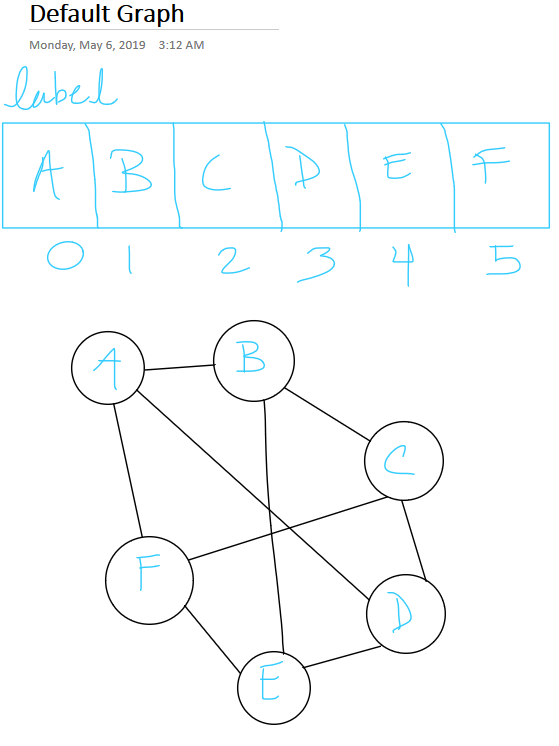 Default Graph
Monday, May 6, 2019 3:12 AM
label
A B C D E F
0 1 2 3 4 5
A B
C
F
D
E